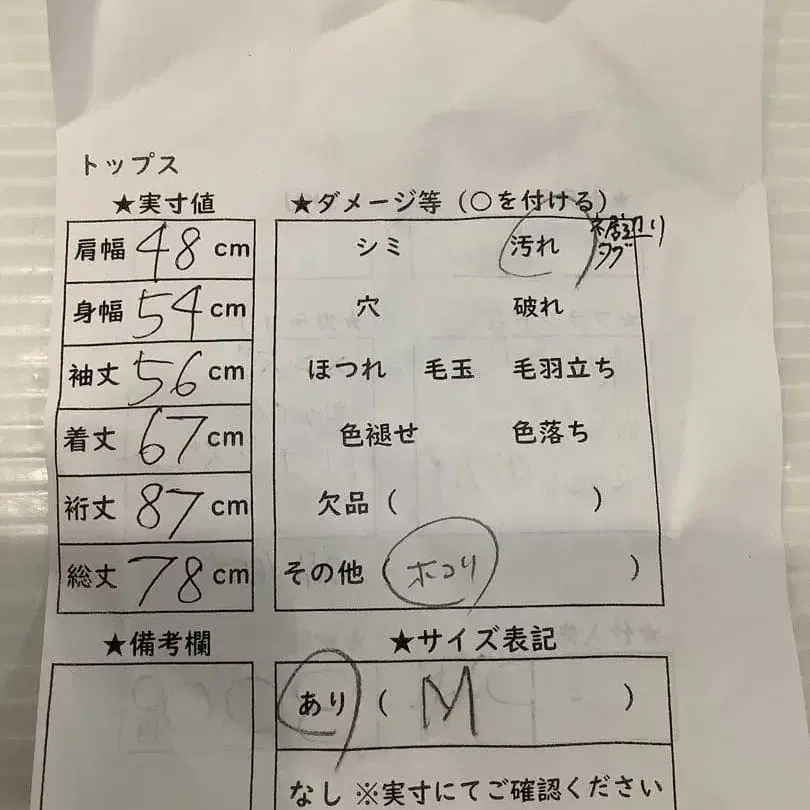 トップス
★実寸値
肩幅 48 cm
身幅 54 cm
袖丈 56 cm
着丈 67 cm
裄丈 87 cm
総丈 78 cm
★ダメージ等（○を付ける）
シミ 汚れ
タグ
穴 破れ
ほつれ 毛玉 毛羽立ち
色褪せ 色落ち
欠品（ ）
その他（ホコリ ）
★備考欄
★サイズ表記
あり（ M ）
なし ※実寸にてご確認ください